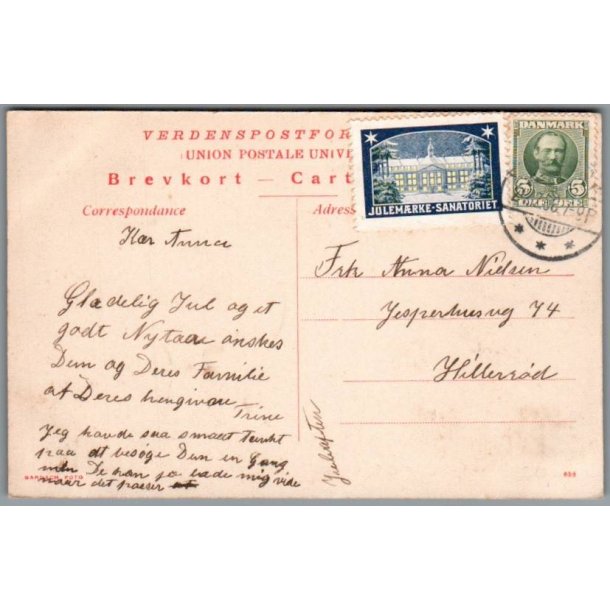 VERDENSPOSTFOR
UNION POSTALE UNIV
Brevkort — Cart
Correspondance
Adress
JULEMÆRKE-SANATORIET
DANMARK
5 5
ØRE
Kær Anna
Glædelig Jul og et
godt Nytaar ønskes
Dem og Deres Familie
at Deres hengivne
Trine
Jeg havde saa smaat tænkt
paa at besøge Dem en Gang
De kan jo lade mig vide
naar det passer
Frk Anna Nielsen
Jespervej 74
Hillerød
Juleaften